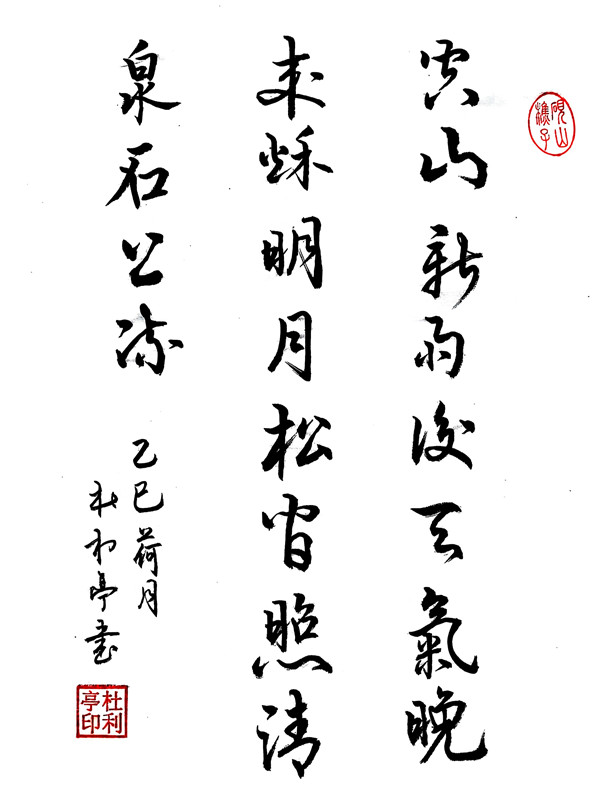 硯山樵子
空山新雨後天氣晚
来秌明月松間照清
泉石公流
乙巳荷月
杜利亭書
杜利亭印